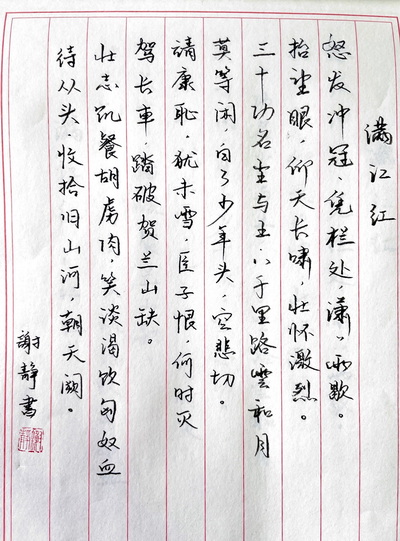 满江红
怒发冲冠、凭栏处,潇〻雨歇。
抬望眼,仰天长啸,壮怀激烈。
三十功名尘与土,八千里路雲和月
莫等闲,白了少年头,空悲切。
靖康恥,犹未雪,臣子恨,何时灭
驾长車,踏破贺兰山缺。
壮志饥餐胡虏肉笑谈渴饮匈奴血
待从头,收拾旧山河,朝天阙。
謝靜書